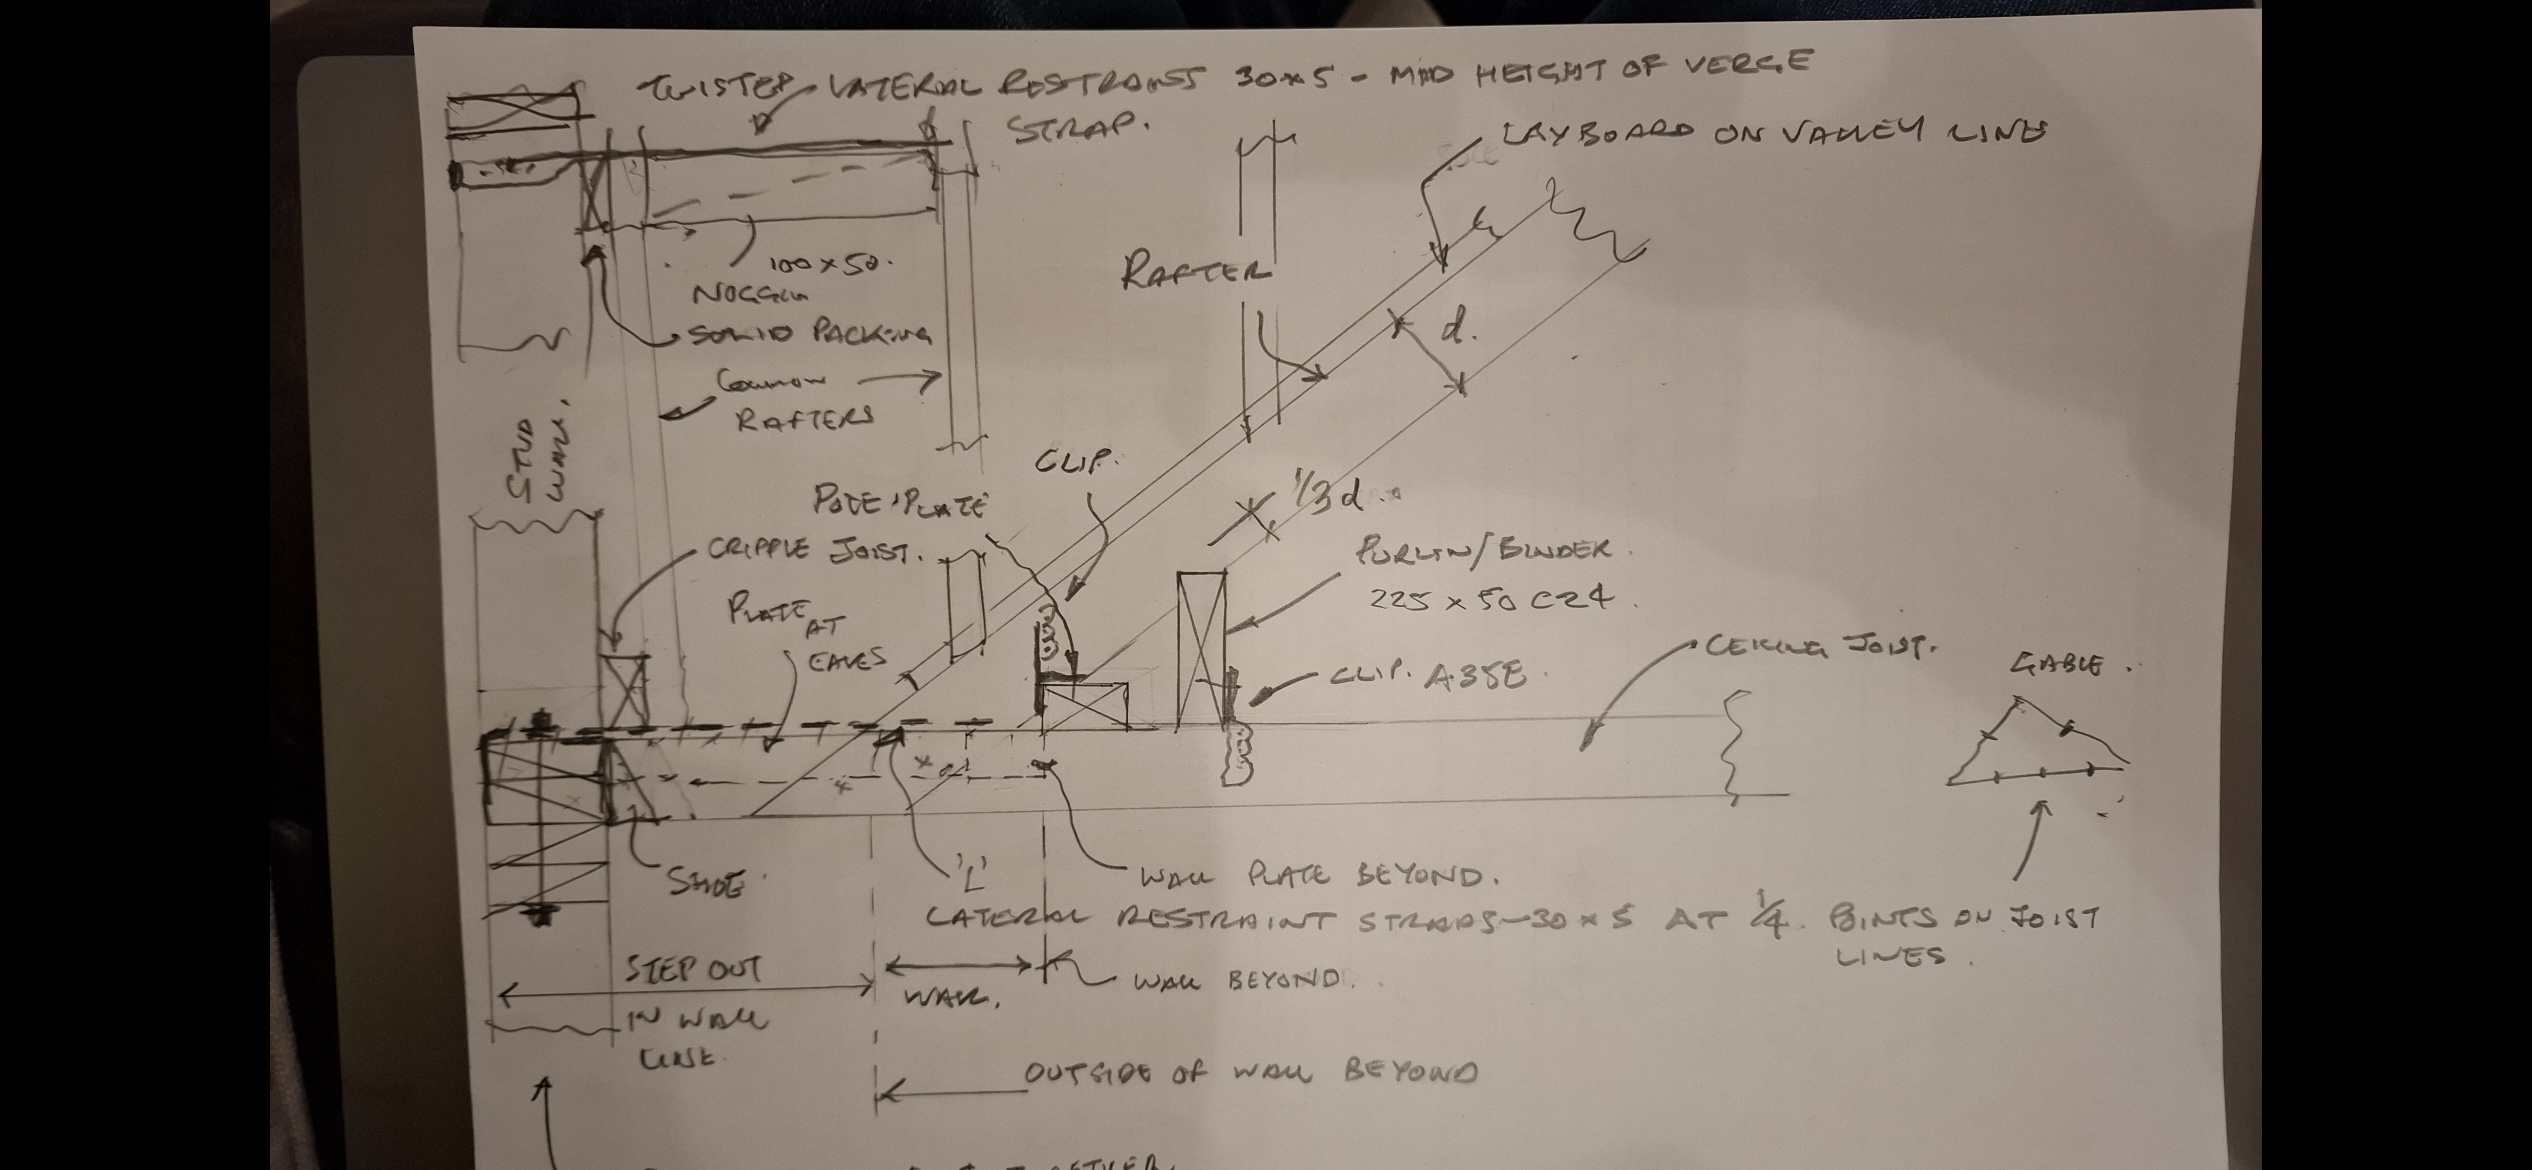 TWISTED LATERAL RESTRAINT 30x5 - MID HEIGHT OF VERGE
STRAP.
LAYBOARD ON VALLEY LINE
100 x 50.
NOGGIN
SOLID PACKING
Common
RAFTERS
RAFTER
d.
STUD
WALL.
CLIP.
POLE PLATE
1/3 d.
CRIPPLE JOIST.
PURLIN/BINDER
225 x 50 C24.
PLATE
AT
EAVES
CEILING JOIST.
CLIP. A35E.
GABLE.
SHOE.
'L'
WALL PLATE BEYOND.
LATERAL RESTRAINT STRAPS - 30 x 5 AT 1/4 POINTS ON JOIST
LINES.
STEP OUT
IN WALL
WALL.
WALL BEYOND.
OUTSIDE OF WALL BEYOND